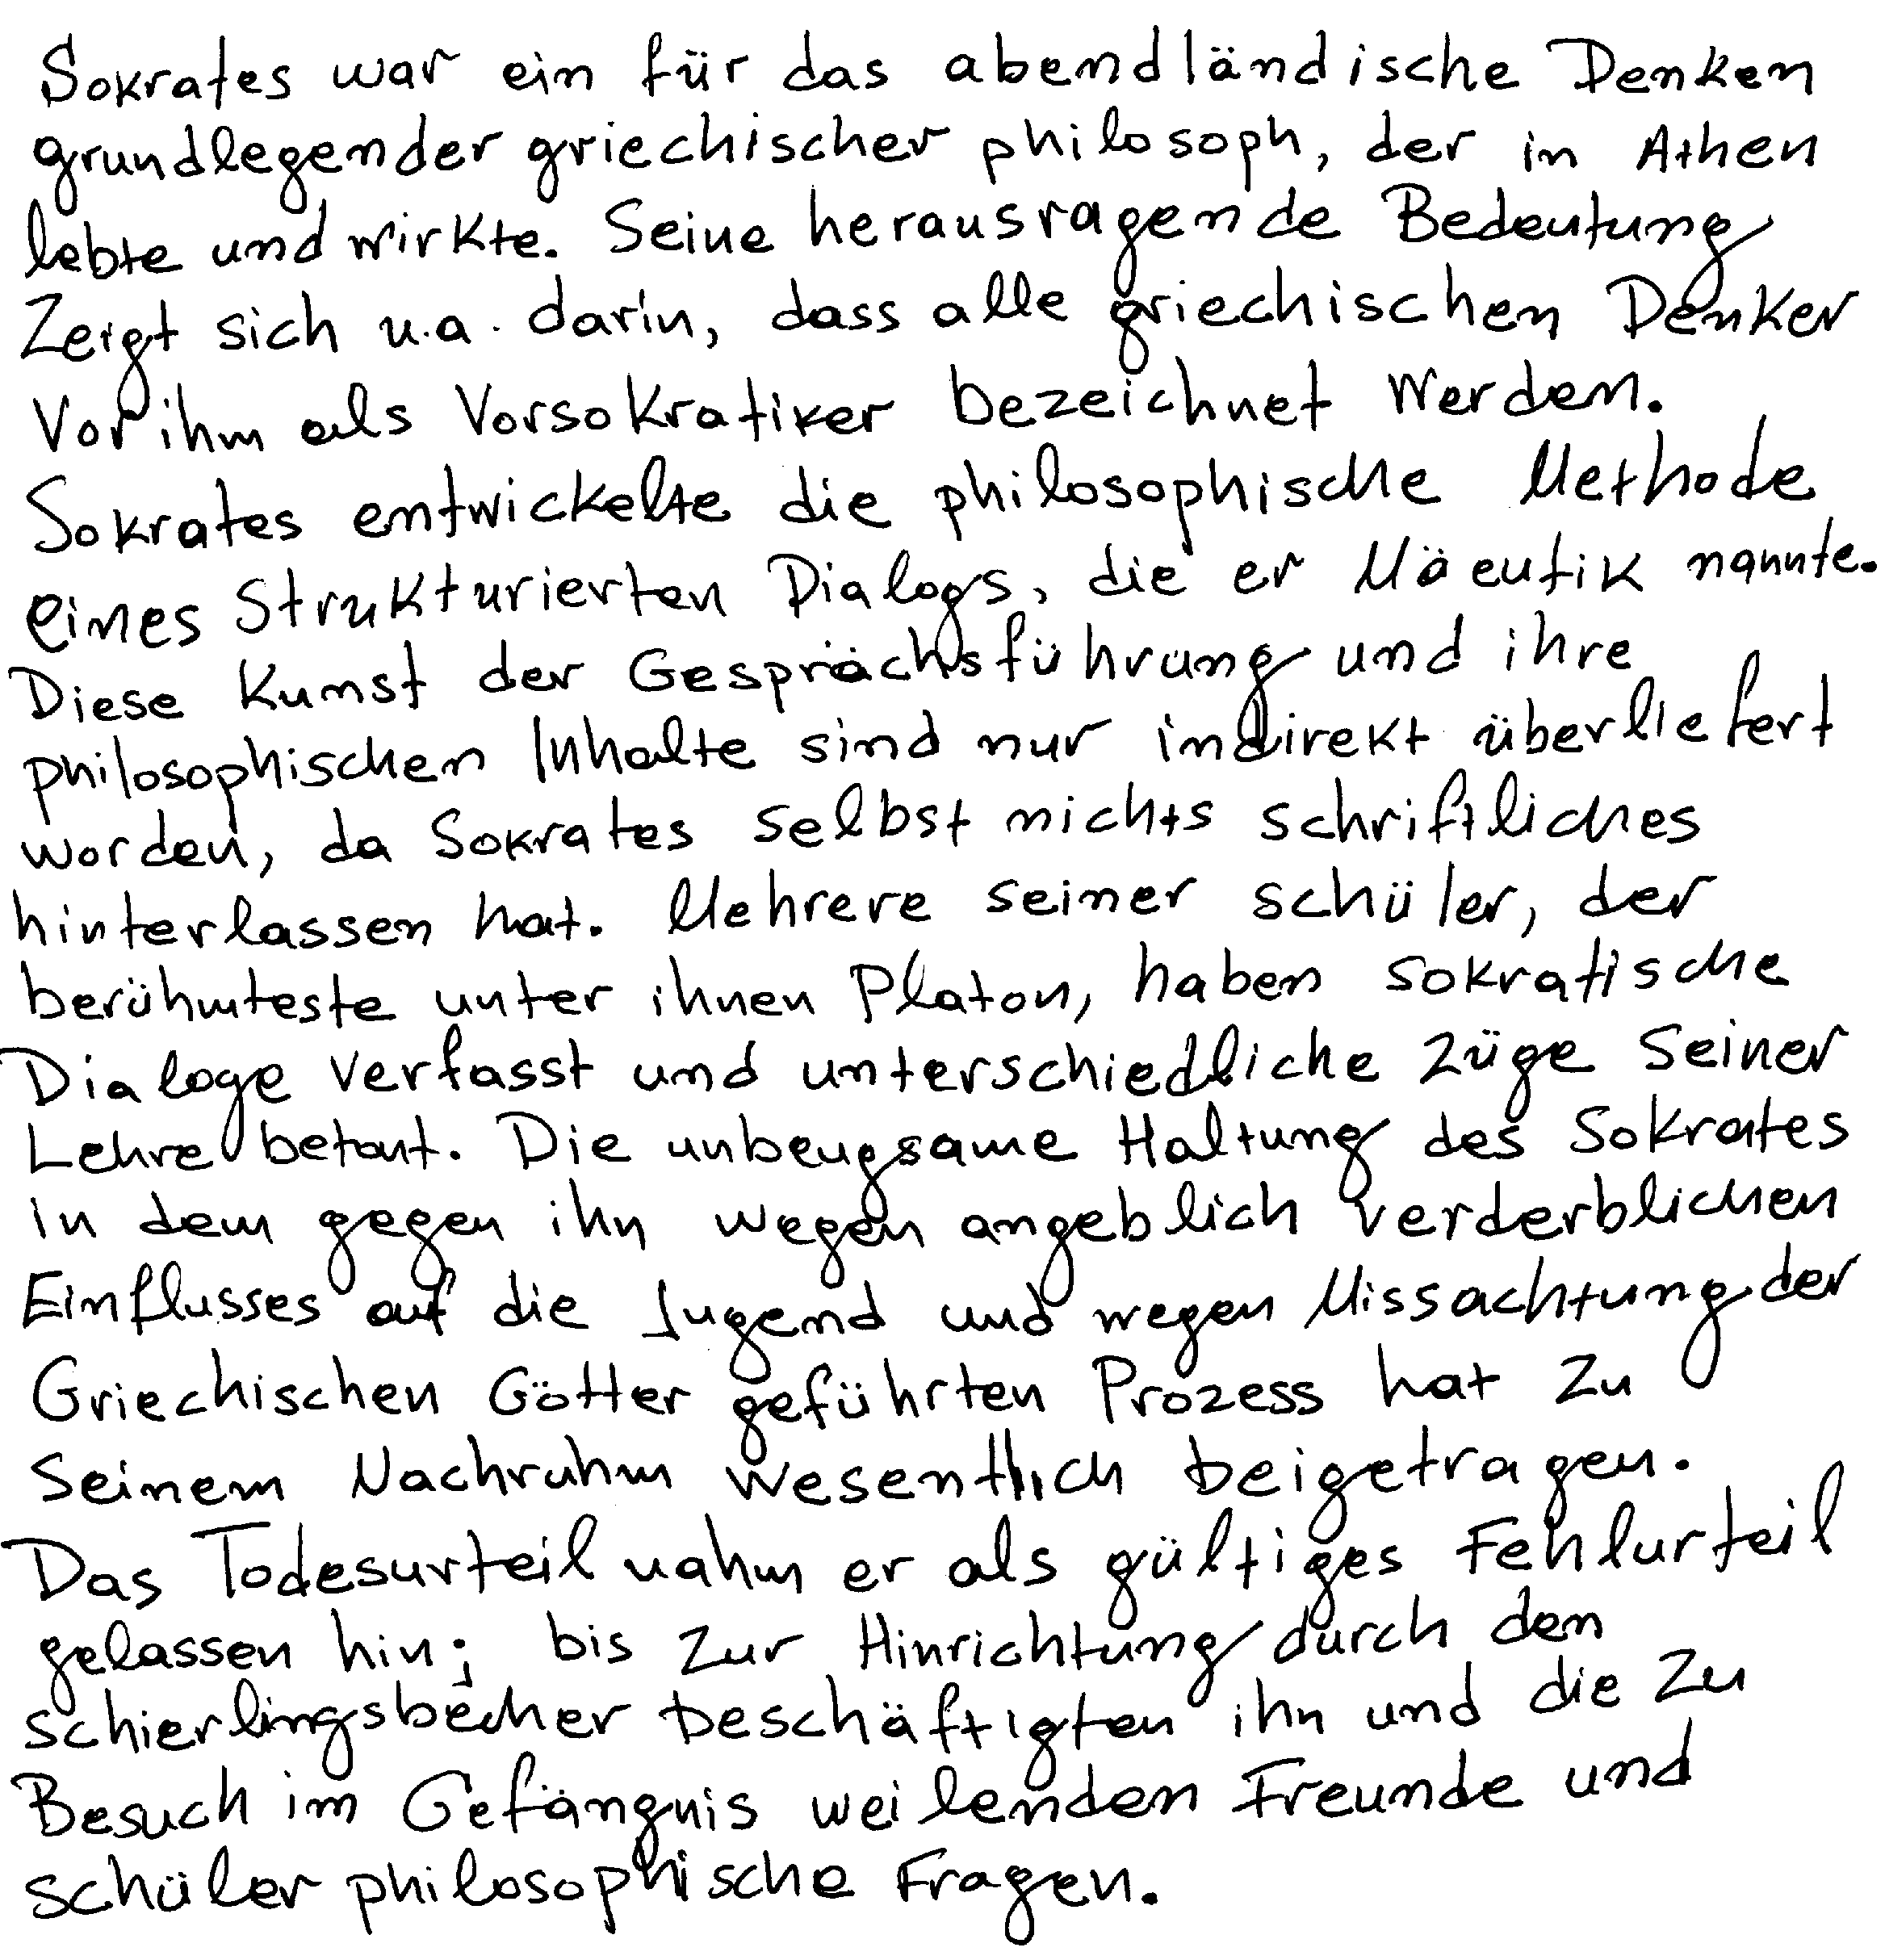 Sokrates war ein für das abendländische Denken
grundlegender griechischer philosoph, der in Athen
lebte und wirkte. Seine herausragende Bedeutung
Zeigt sich u.a. darin, dass alle griechischen Denker
Vor ihm als Vorsokratiker bezeichnet werden.
Sokrates entwickelte die philosophische Methode
eines Strukturierten Dialogs, die er Mäeutik nannte.
Diese Kunst der Gesprächsführung und ihre
philosophischen Inhalte sind nur indirekt überliefert
worden, da Sokrates selbst nichts schriftliches
hinterlassen hat. Mehrere seiner schüler, der
berühmteste unter ihnen Platon, haben sokratische
Dialoge verfasst und unterschiedliche Züge seiner
Lehre betont. Die unbeugsame Haltung des Sokrates
in dem gegen ihn wegen angeblich verderblichen
Einflusses auf die Jugend und wegen Missachtung der
Griechischen Götter geführten Prozess hat zu
seinem Nachruhm wesentlich beigetragen.
Das Todesurteil nahm er als gültiges Fehlurteil
gelassen hin; bis zur Hinrichtung durch den
schierlingsbecher beschäftigten ihn und die zu
Besuch im Gefängnis weilenden Freunde und
schüler philosophische Fragen.